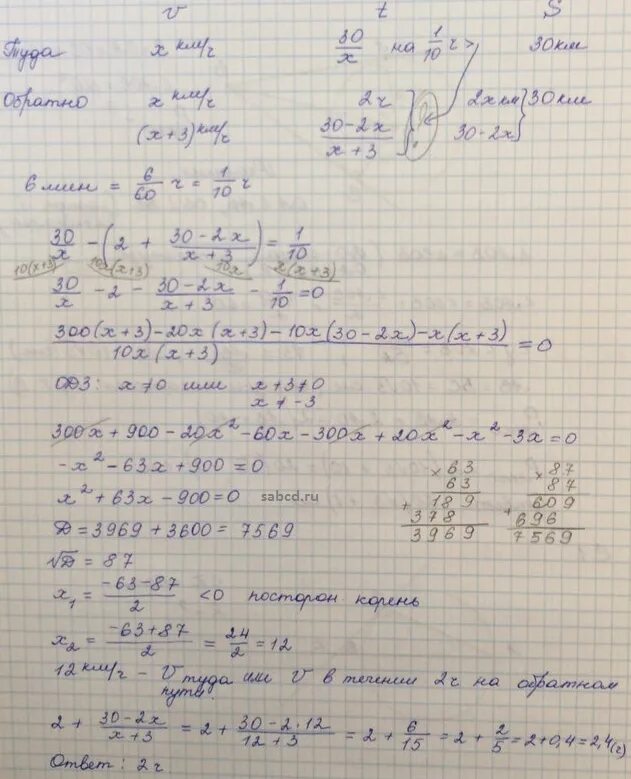 v t S
Туда x км/ч 30/x на 1/10 ч > 30 км
Обратно x км/ч 2ч 2x км } 30 км
(x+3) км/ч (30-2x)/(x+3) 30-2x
6 мин = 6/60 ч = 1/10 ч
30/x - (2 + (30-2x)/(x+3)) = 1/10
10(x+3) 10x(x+3) 10x x(x+3)
30/x - 2 - (30-2x)/(x+3) - 1/10 = 0
(300(x+3)-20x(x+3)-10x(30-2x)-x(x+3))/(10x(x+3)) = 0
ОДЗ: x≠0 или x+3≠0
x ≠ -3
300x + 900 - 20x² - 60x - 300x + 20x² - x² - 3x = 0
-x² - 63x + 900 = 0
x² + 63x - 900 = 0
sabcd.ru
D = 3969 + 3600 = 7569
× 63
63
+ 189
378
3969
× 87
87
+ 609
696
7569
√D = 87
x₁ = (-63-87)/2 <0 посторон корень
x₂ = (-63+87)/2 = 24/2 = 12
12 км/ч - V туда или V в течении 2ч на обратном
пути.
2 + (30-2x)/(x+3) = 2 + (30-2·12)/(12+3) = 2 + 6/15 = 2 + 2/5 = 2+0,4 = 2,4 (ч)
Ответ: 2ч